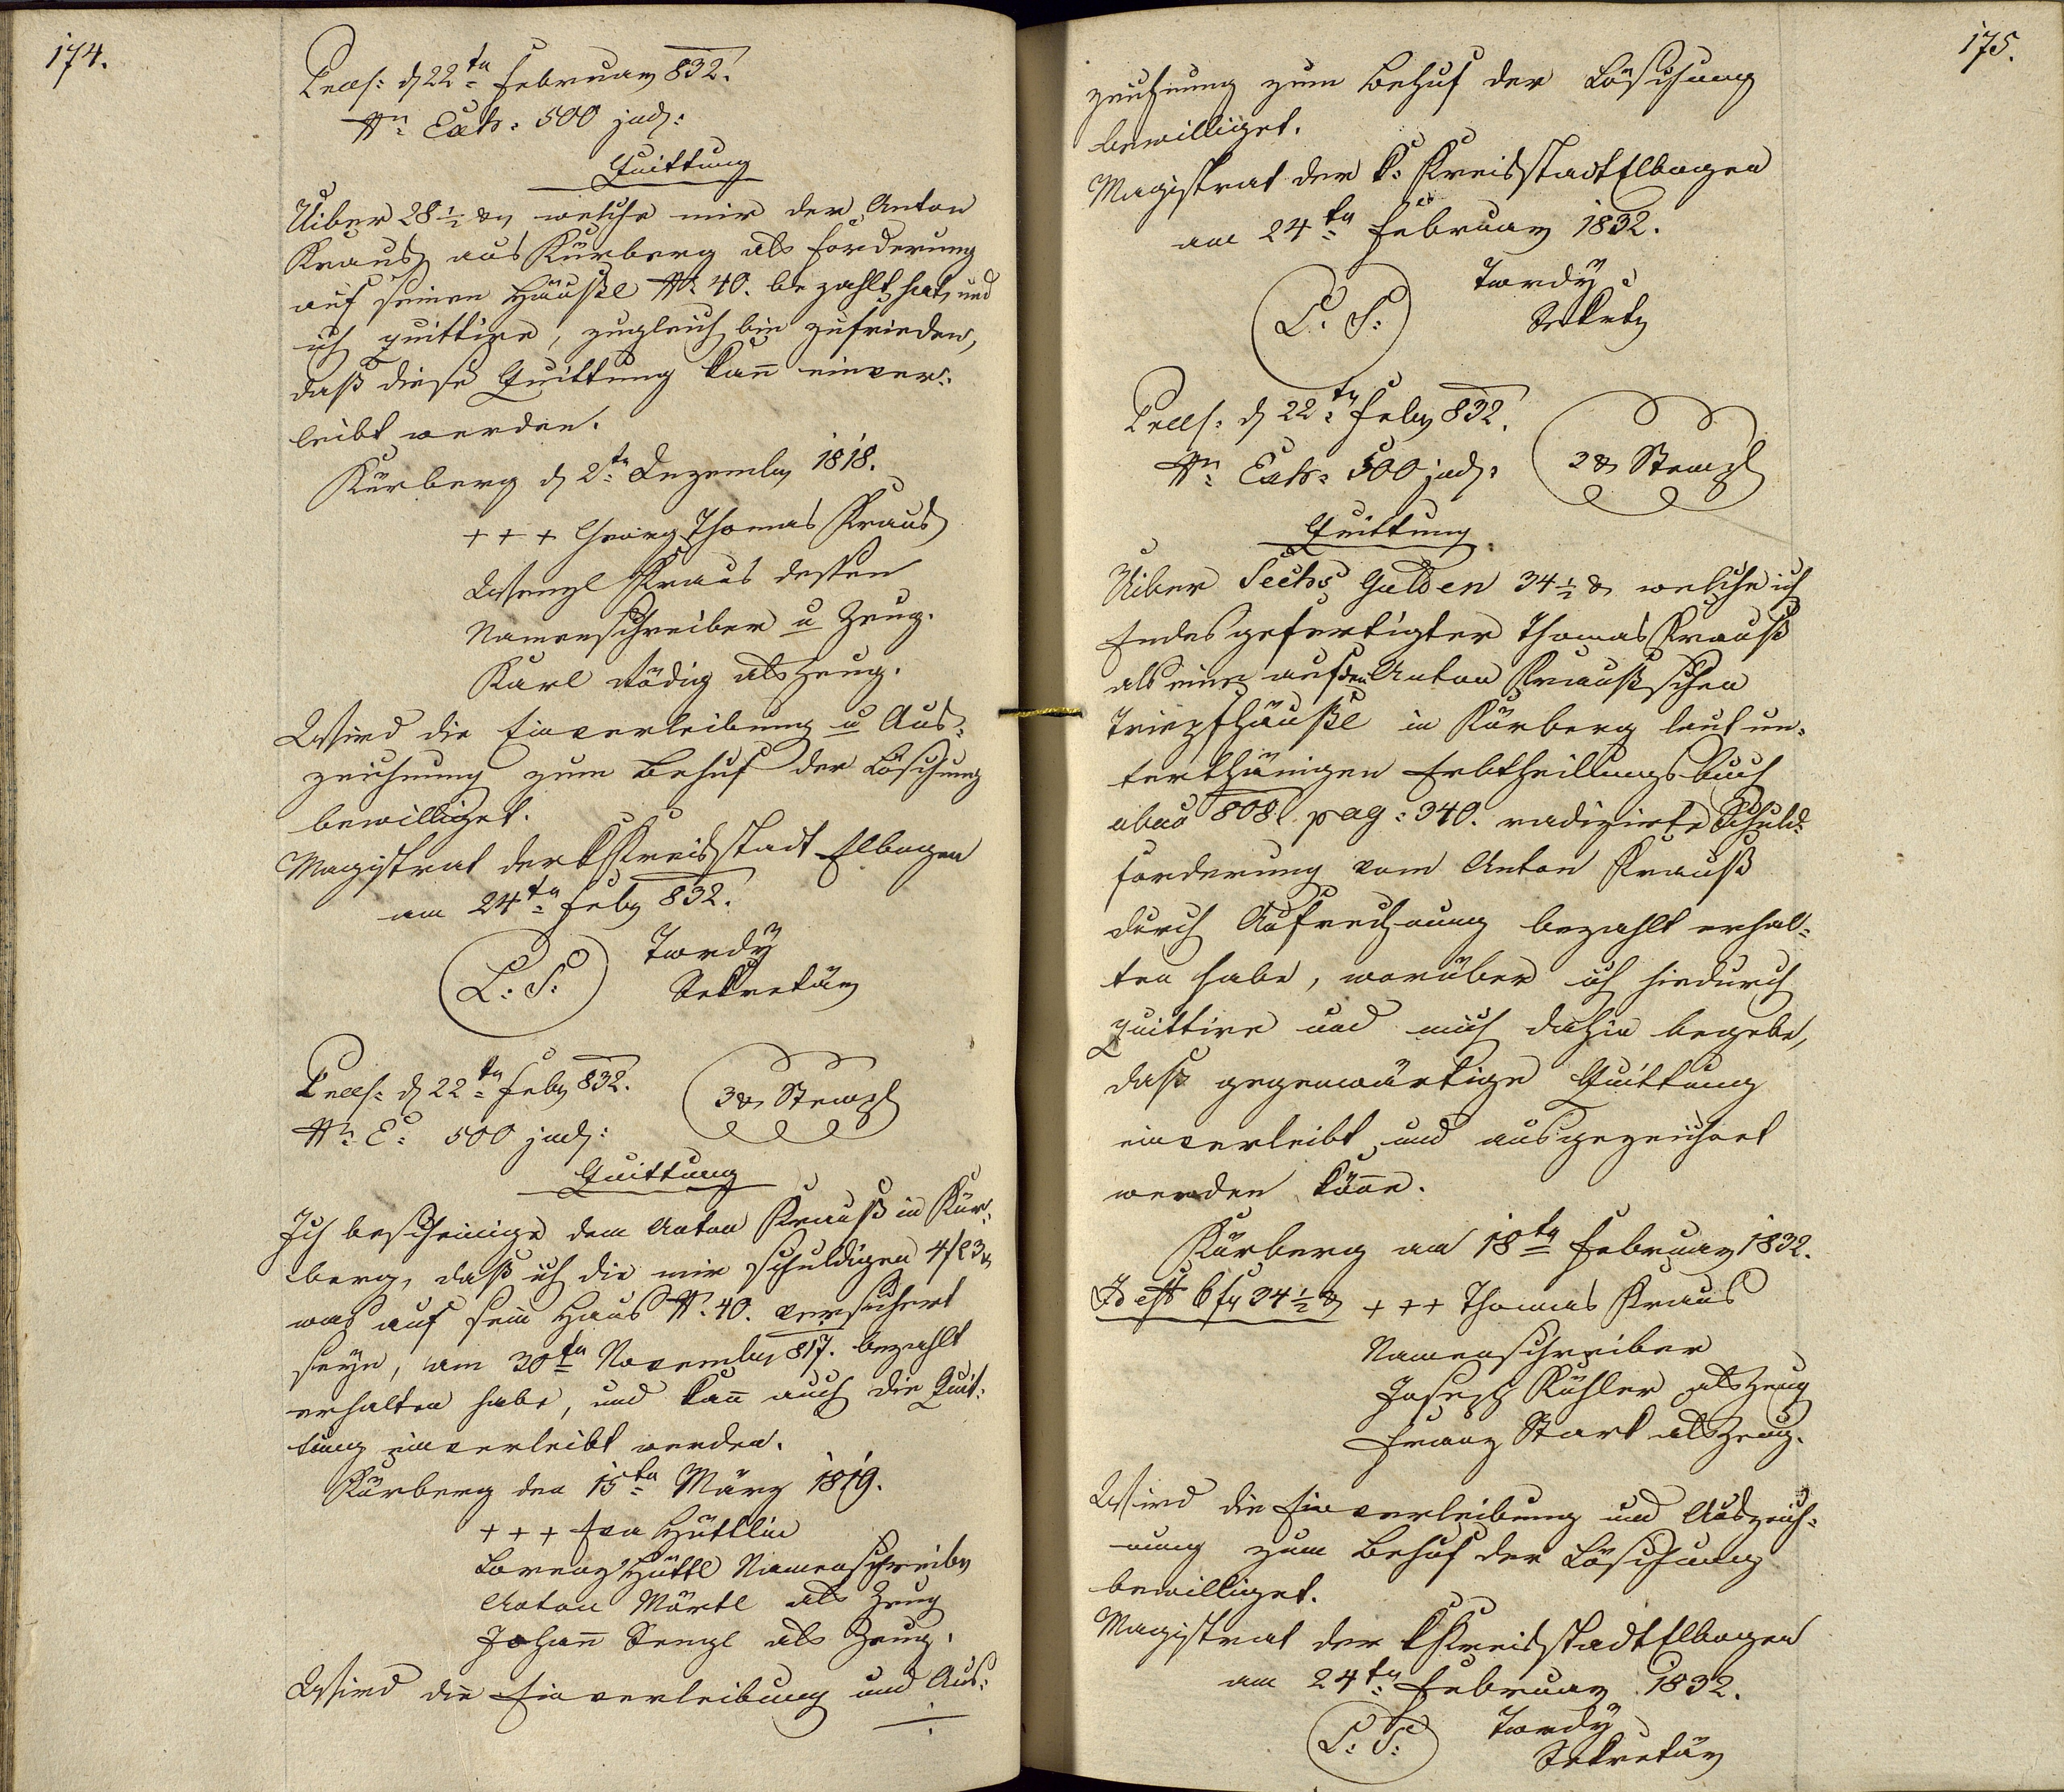 174.
Praes: d 22tn Februar 832.
Nn Exh: 500 jud:
Quittung
Uiber 28 1/2 xr welche mir der Anton
Kraus aus Kürberg als Forderung
auf seinem Häußl N. 40. bezahlt hat, und
ich quittire, zugleich bin zufrieden,
daß diese Quittung kan̄ einver:
leibt werden.
Kürberg d 2tn Dezember 1818.
+ + + Georg Thomas Kraus
Wenzl Kraus dessen
Namenschreiber u Zeug.
Karl Rödig als Zeug.
Wird die Einverleibung u Aus:
zeichnung zum Behuf der Löschung
bewilliget.
Magistrat der k Kreisstadt Elbogen
am 24tn Feby 832.
L: S:
Twrdÿ
Sekretär
Praes: d 22tn Feby 832.
3 xr Stempl
Nn E: 500 jud:
Quittung
Ich bescheinige dem Anton Krauß in Kür:
berg, daß ich die mir schuldigen 4 f 23 xr
was auf sein Haus N. 40. versichert
seÿn, am 30tn November 817. bezahlt
erhalten habe, und kan̄ auch die Quit:
tung einverleibt werden.
Kürberg den 15tn März 1819.
+ + + Eva Hüttlin
Lorenz Hüttl Namenschreiber
Anton Märtl als Zeug
Johan̄ Senzl als Zeug.
Wird die Einverleibung und Aus:
175.
zeichnung zum Behuf der Löschung
bewilliget.
Magistrat der k: Kreisstadt Elbogen
am 24tn Februar 1832.
L. S:
Twrdÿ
Sekretr
Praes: d 22tn Feby 832.
Nn Exh: 500 jud:
2 xr Stempl
Quittung
Uiber Sechs Gulden 34 1/2 xr welche ich
Endesgefertigter Thomas Krauß
als eine auf dem Anton Kraußschen
Tripfhäußl in Kürberg laut un:
terthänigen Erbtheilungsbuch
abao 808. pag: 340. radizirte Schuld:
forderung vom Anton Krauß
durch Aufrechnung bezahlt erhal:
ten habe, worüber ich hiedurch
quittire und mich dahin begebe,
daß gegenwärtige Quittung
einverleibt und ausgezeichnet
werden könne.
Kürberg am 18tn Februar 1832.
Id est 6 fr 34 1/2 xr + + + Thomas Kraus
Namenschreiber
Joseph Kühler als Zeug
Franz Stark als Zeug.
Wird die Einverleibung und Auszeich:
nung zum Behuf der Löschung
bewilliget.
Magistrat der k Kreisstadt Elbogen
am 24tn Februar 1832.
L: S:
Twrdÿ
Sekretär